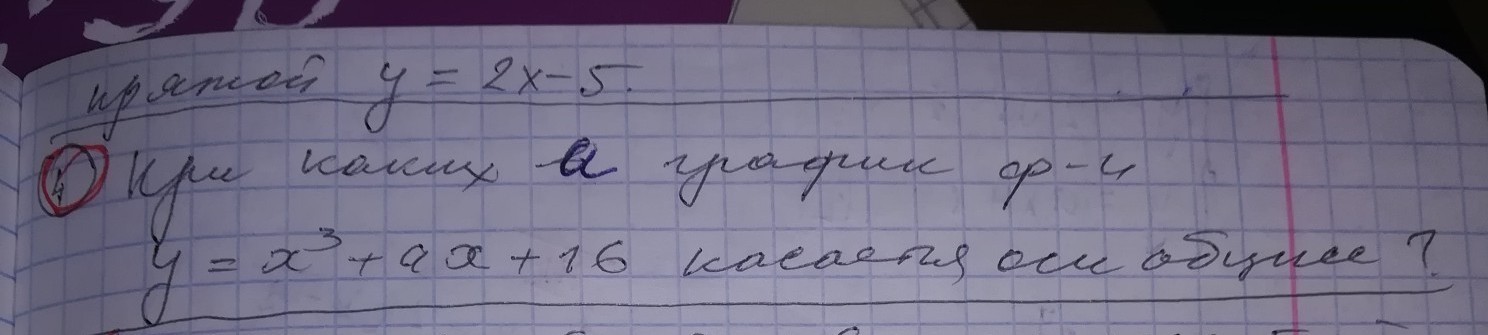 прямой y = 2x - 5.
4 При каких a график ф-и
y = x³ + ax + 16 касается оси абцисс?